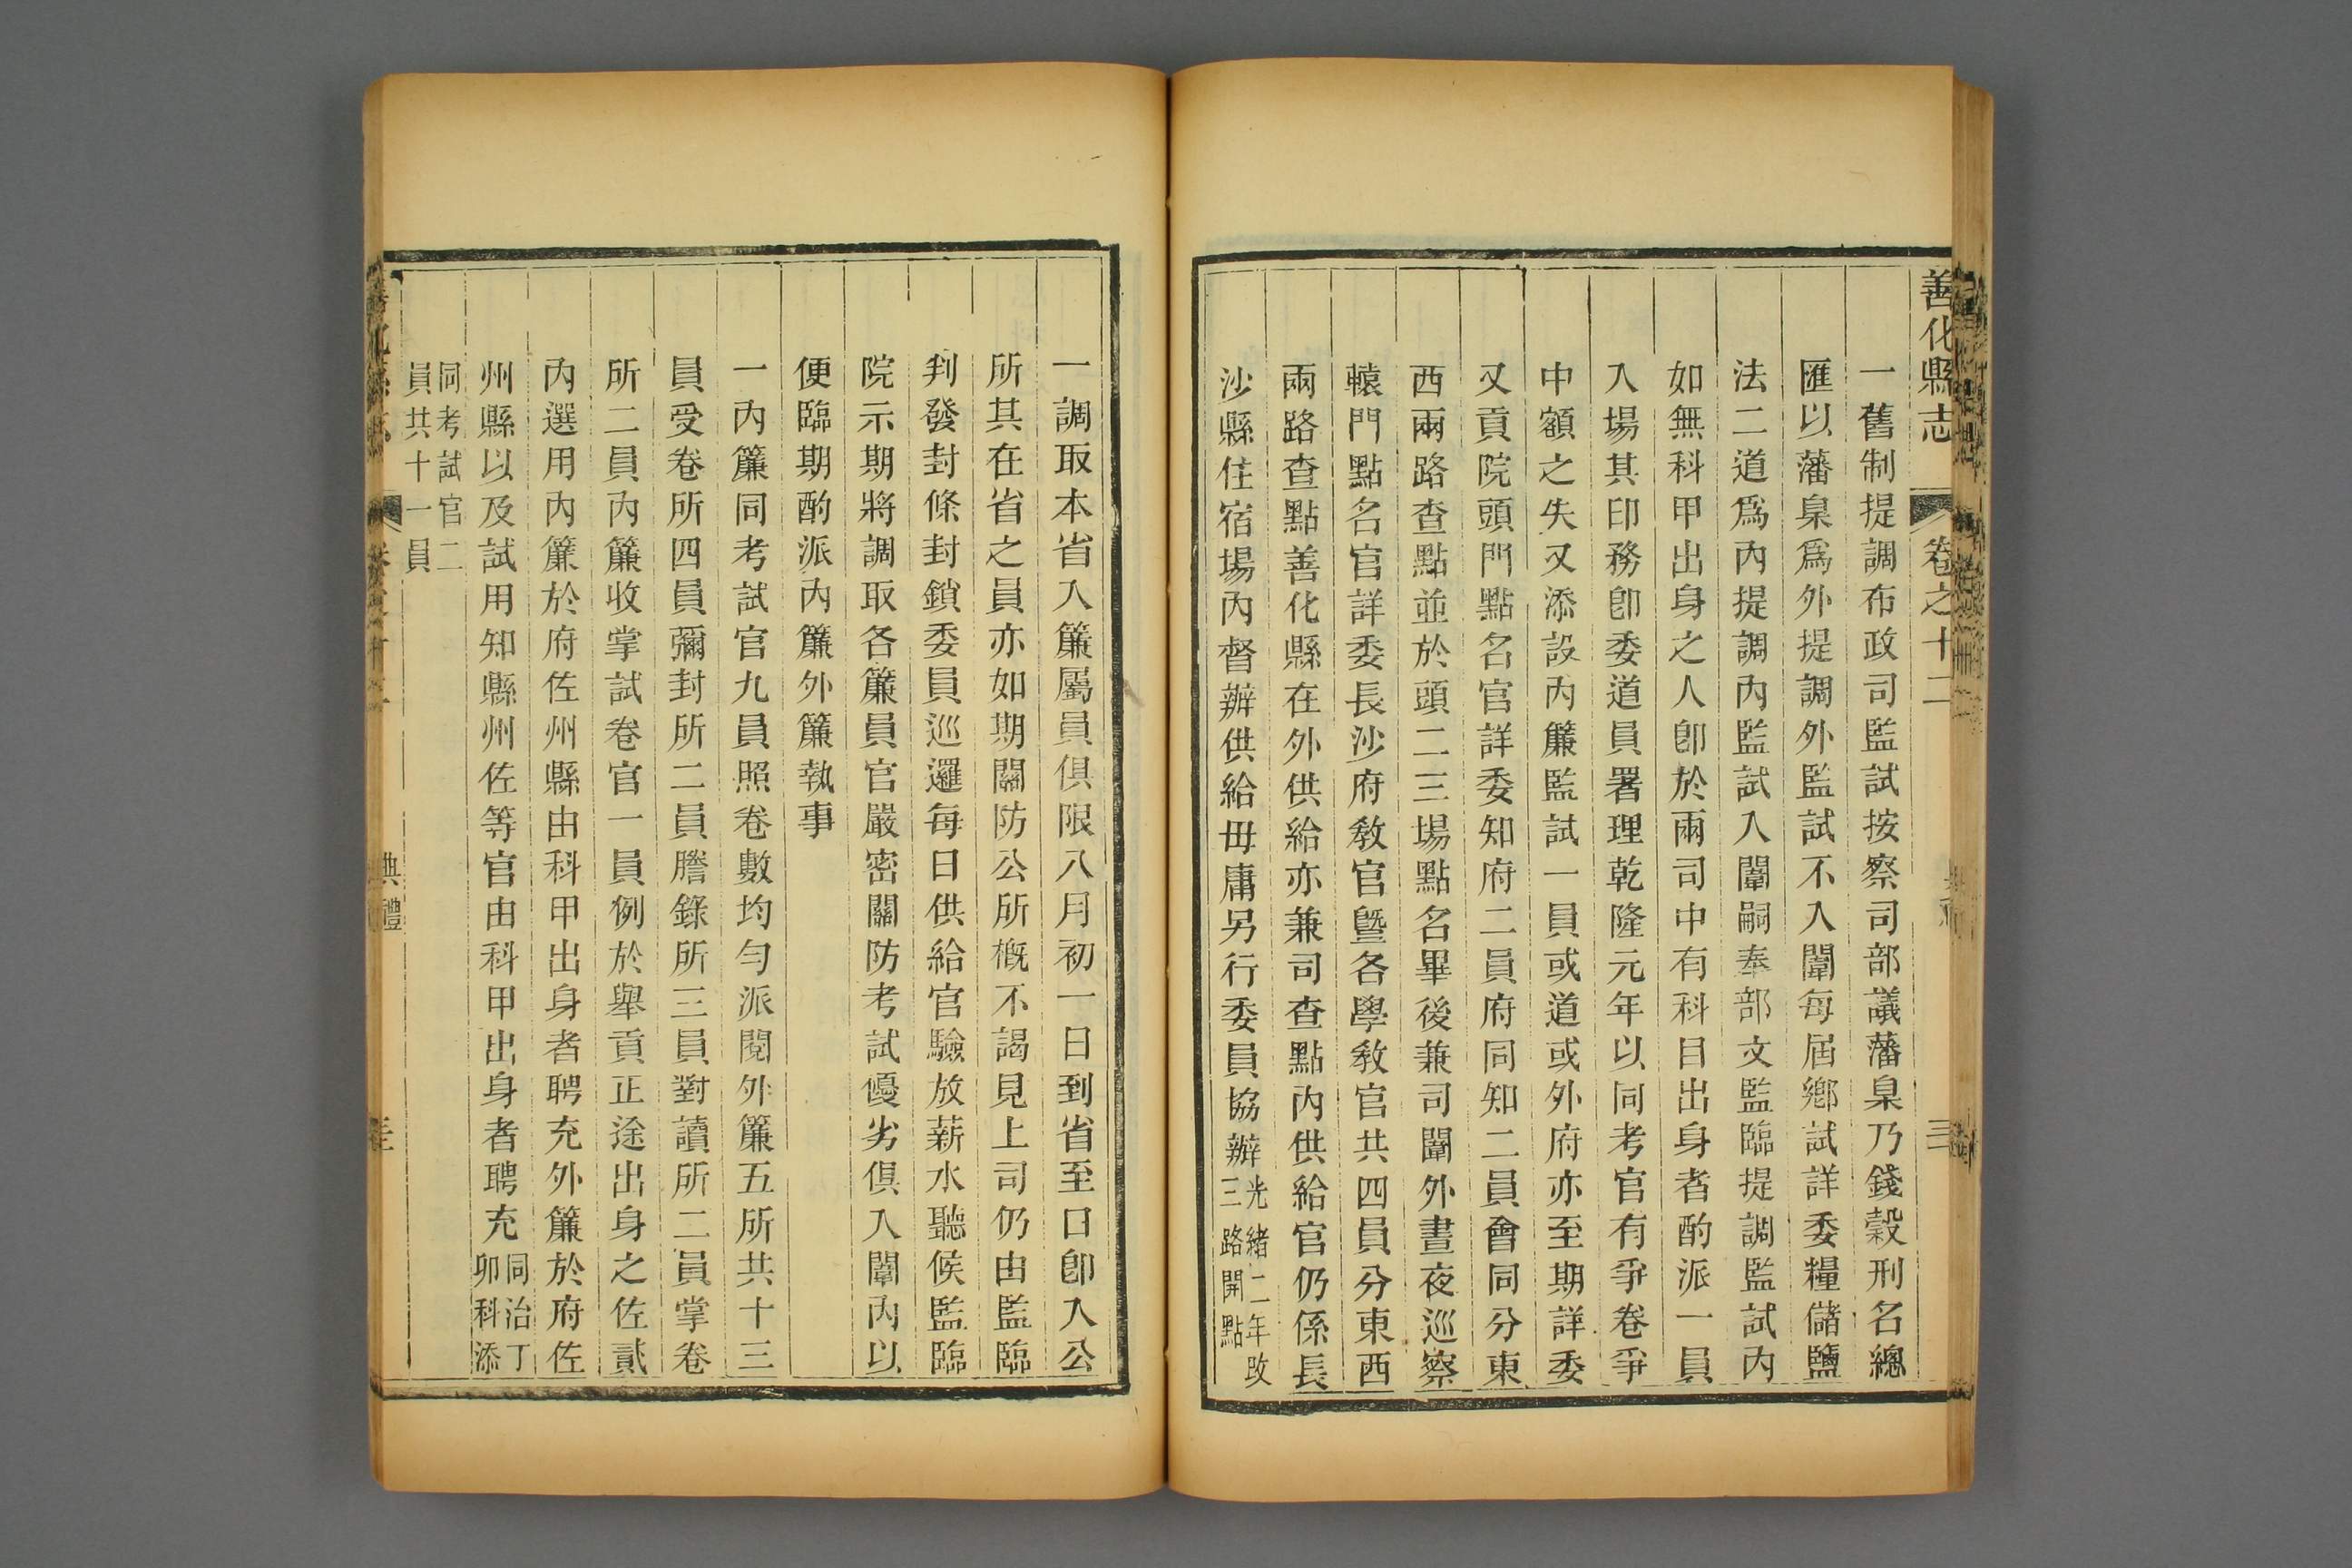 善化縣志　卷之十二
一舊制提調布政司監試按察司部議藩臬乃錢穀刑名總
匯以藩臬爲外提調外監試不入闈每屆鄕試詳委糧儲鹽
法二道爲內提調內監試入闈嗣奉部文監臨提調監試內
如無科甲出身之人卽於兩司中有科目出身者酌派一員
入場其印務卽委道員署理乾隆元年以同考官有爭卷爭
中額之失又添設內簾監試一員或道或外府亦至期詳委
又貢院頭門點名官詳委知府二員府同知二員會同分東
西兩路查點並於頭二三場點名畢後兼司闈外晝夜巡察
轅門點名官詳委長沙府敎官曁各學敎官共四員分東西
兩路查點善化縣在外供給亦兼司查點內供給官仍係長
沙縣住宿場內督辦供給毋庸另行委員協辦光緒二年改三路開點
一調取本省入簾屬員俱限八月初一日到省至日卽入公
所其在省之員亦如期關防公所槪不謁見上司仍由監臨
判發封條封鎖委員巡邏每日供給官驗放薪水聽候監臨
院示期將調取各簾員官嚴密關防考試優劣俱入闈內以
便臨期酌派內簾外簾執事
一內簾同考試官九員照卷數均勻派閱外簾五所共十三
員受卷所四員彌封所二員謄錄所三員對讀所二員掌卷
所二員內簾收掌試卷官一員例於舉貢正途出身之佐貳
內選用內簾於府佐州縣由科甲出身者聘充外簾於府佐
州縣以及試用知縣州佐等官由科甲出身者聘充同治丁卯科添
同考試官二員共十一員
典禮